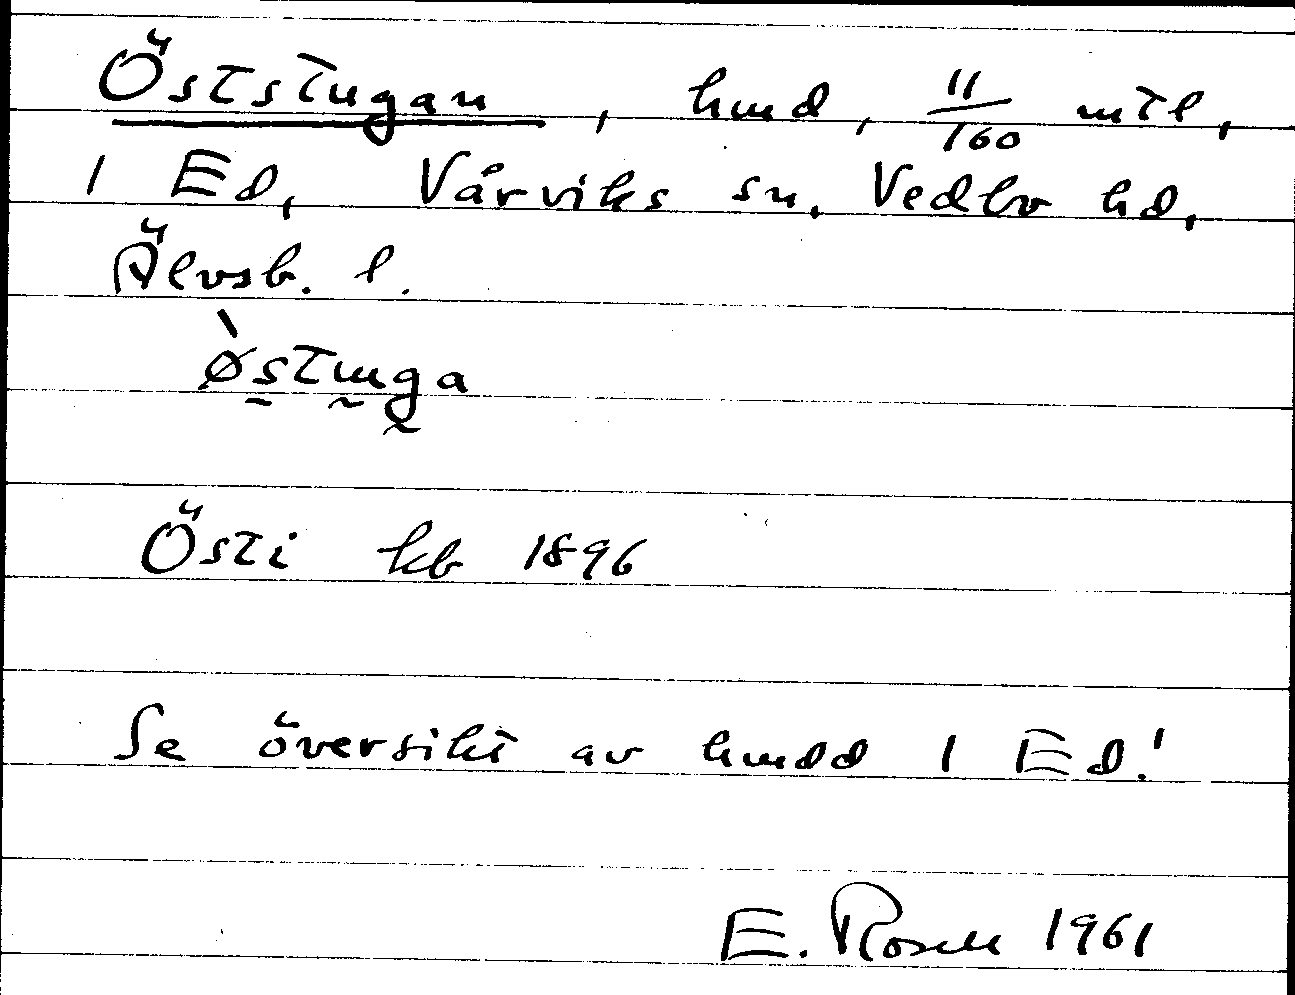 Öststugan, hmd, 11/160 mtl,
1 Ed, Vårviks sn. Vedbo hd,
Älvsb. l.
`østuga
Östi kb 1896
Se översikt av hmdd 1 Ed!
E. Rosell 1961